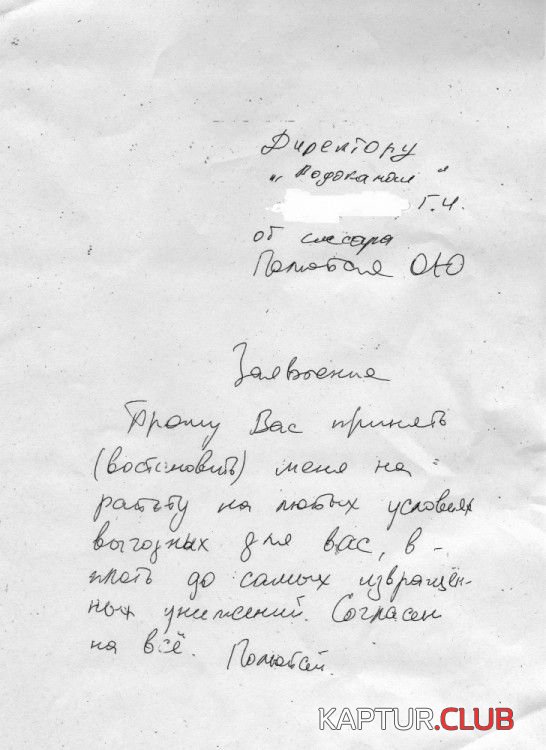 Директору
"Водоканал"
Г.И.
от слесаря
О.Ю
Заявление
Прошу Вас принять
(востоновить) меня на
работу на любых условиях
выгодных для вас, в-
плоть до самых извращён-
ных унижений. Согласен
на всё.
KAPTUR.CLUB